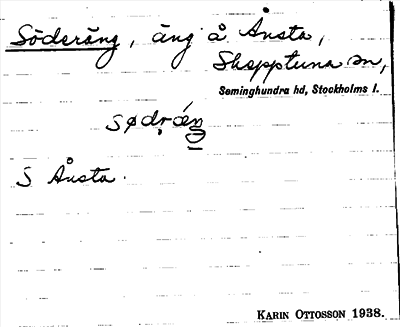 Söderäng, äng å Ånsta,
Skepptuna sn,
Seminghundra hd, Stockholms l.
S Ånsta.
KARIN OTTOSSON 1938.